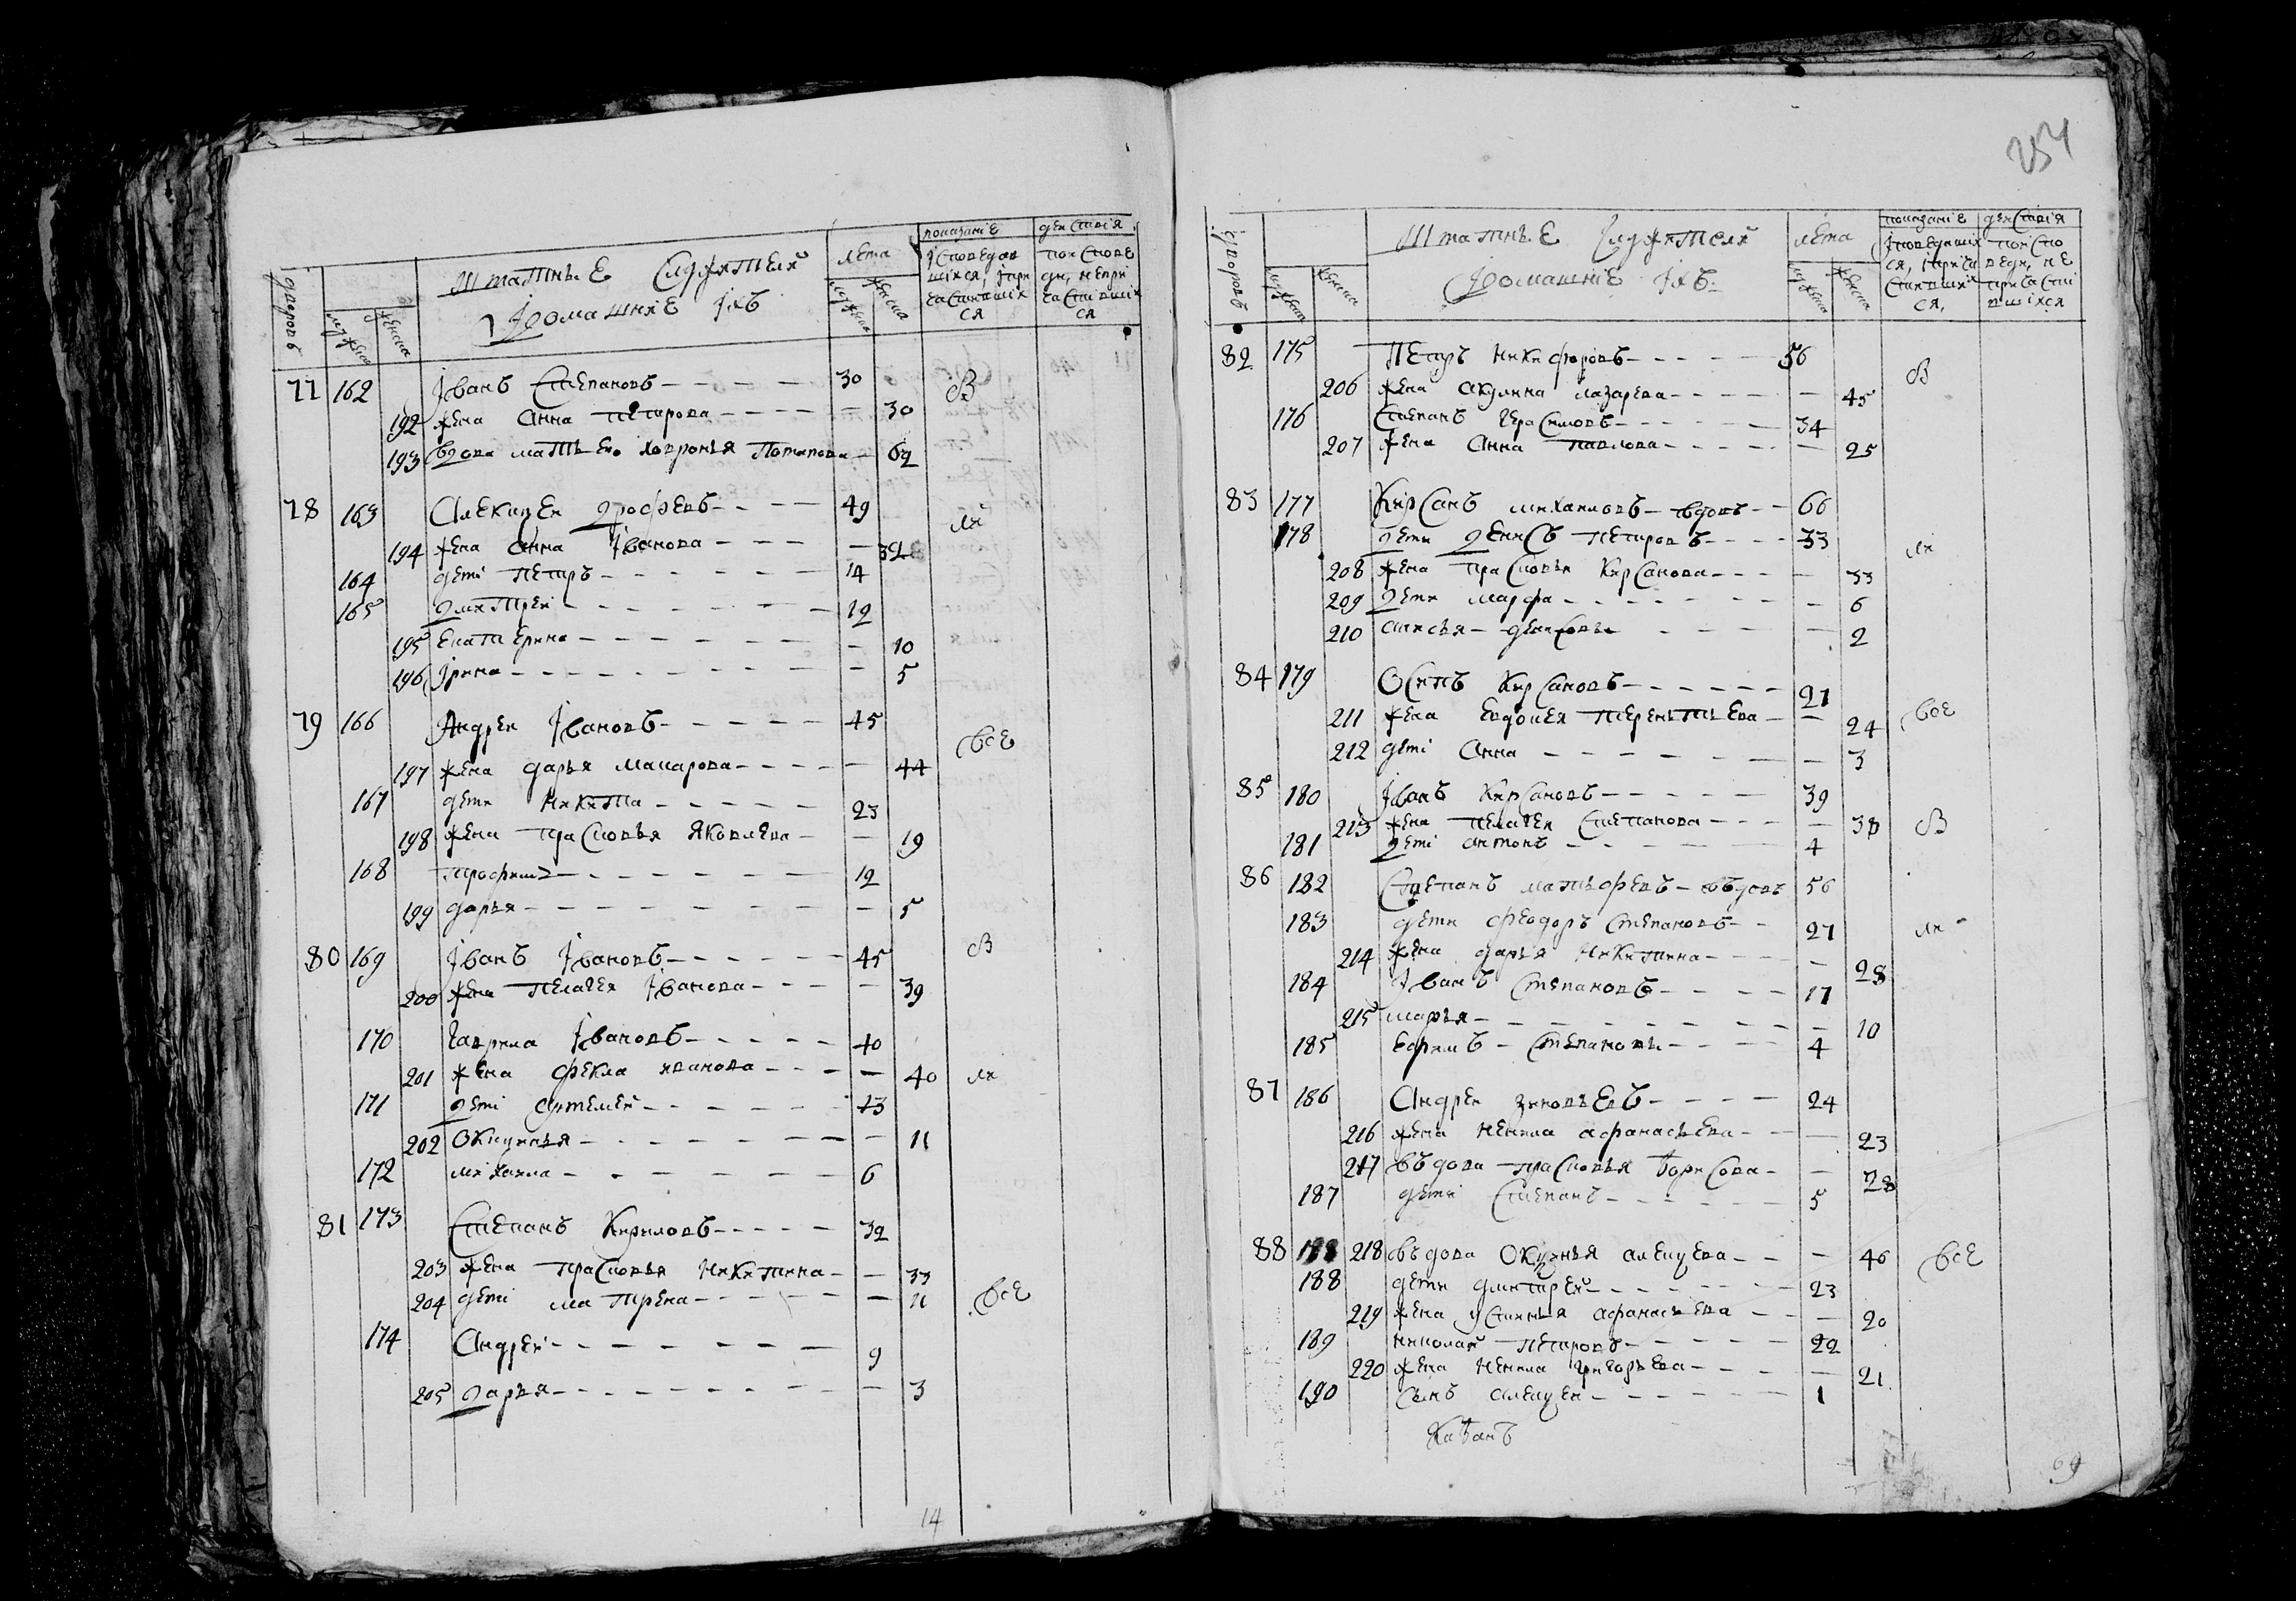 дворовъ
мужеска
женска
Штатные Служители
Домашние Іхъ
лета
мужеска
женска
показание действия
Ісповедав поисповѣ
шихся, Ипри ди, непри
частившіх частившіх
ся ся
77 162 Іванъ Степановъ 30
192 жена Анна петрова 30
193 вдова мать ево ховронья Потапова 62
св
78 163 Алекшеи дрофеевъ 49
194 жена анна Іванова
164 деті петръ 14
165 дмитреи 12
195 Екатерина 10
196 Ірина 5
79 166 Андреи Івановъ 45
197 жена дарья макарова 44
все
167 дети никита 23
198 жена прасковья Яковлева 19
168 трофимъ 12
199 дарья 5
80 169 Іванъ Івановъ 45
200 жена пелагея Іванова 39
св
170 гаврила Івановъ 40
201 жена фекла иванова 40
171 детi артемеи 13
202 Окцинья 11
172 михаила 6
81 173 Степанъ Кириловъ 32
203 жена прасковья никитина 33
204 детi матрена 11
все
174 Андреи 9
205 дарья 3
14
254
дворовъ
мужеска
женска
Штатные Служители
Домашние Іхъ
лета
мужеска
женска
показание действия
Іповедшихся, при поиспо
ся, іприча веди, не
стившихся причасти
ся, вшихся
82 175 Петръ Никифоровъ 56
206 жена акулина лазарева 45
св
176 Степанъ герасимовъ 34
207 жена Анна павлова 25
83 177 Кирсанъ михаиловъ вдовъ 66
178 дети денисъ петровъ 33
208 жена прасковья кирсанова 33
209 дети марфа 6
210 анисья денисовы 2
84 179 Осипъ Кирсановъ 21
211 жена евдокея терентьева 24
все
212 детi Анна 3
85 180 Іванъ Кирсановъ 39
213 жена пелагея степанова 38
св
181 детi антонъ 4
86 182 Степанъ матьфеевъ въдовъ 56
183 дети феодоръ степановъ 27
214 жена дарья никитина 28
184 Іванъ степановъ 17
215 марья 10
185 ефимъ Степановы 4
87 186 Андреи зиновьевъ 24
216 жена ненила афанасьева 23
217 въдова прасковья борисова 28
187 дети Степанъ 5
88 218 въдова Окцинья алекцеева 46
все
188 дети дмитреи 23
219 жена устинья афанасьева 20
189 николаи петровъ 22
220 жена ненила григорьева 21
190 сынъ алекцеи 1
69